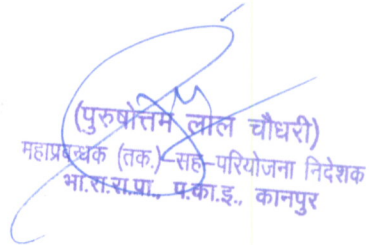 (पुरुषोत्तम लाल चौधरी)
महाप्रबन्धक (तक.)–सह–परियोजना निदेशक
भा.रा.रा.प्रा., प.का.इ., कानपुर